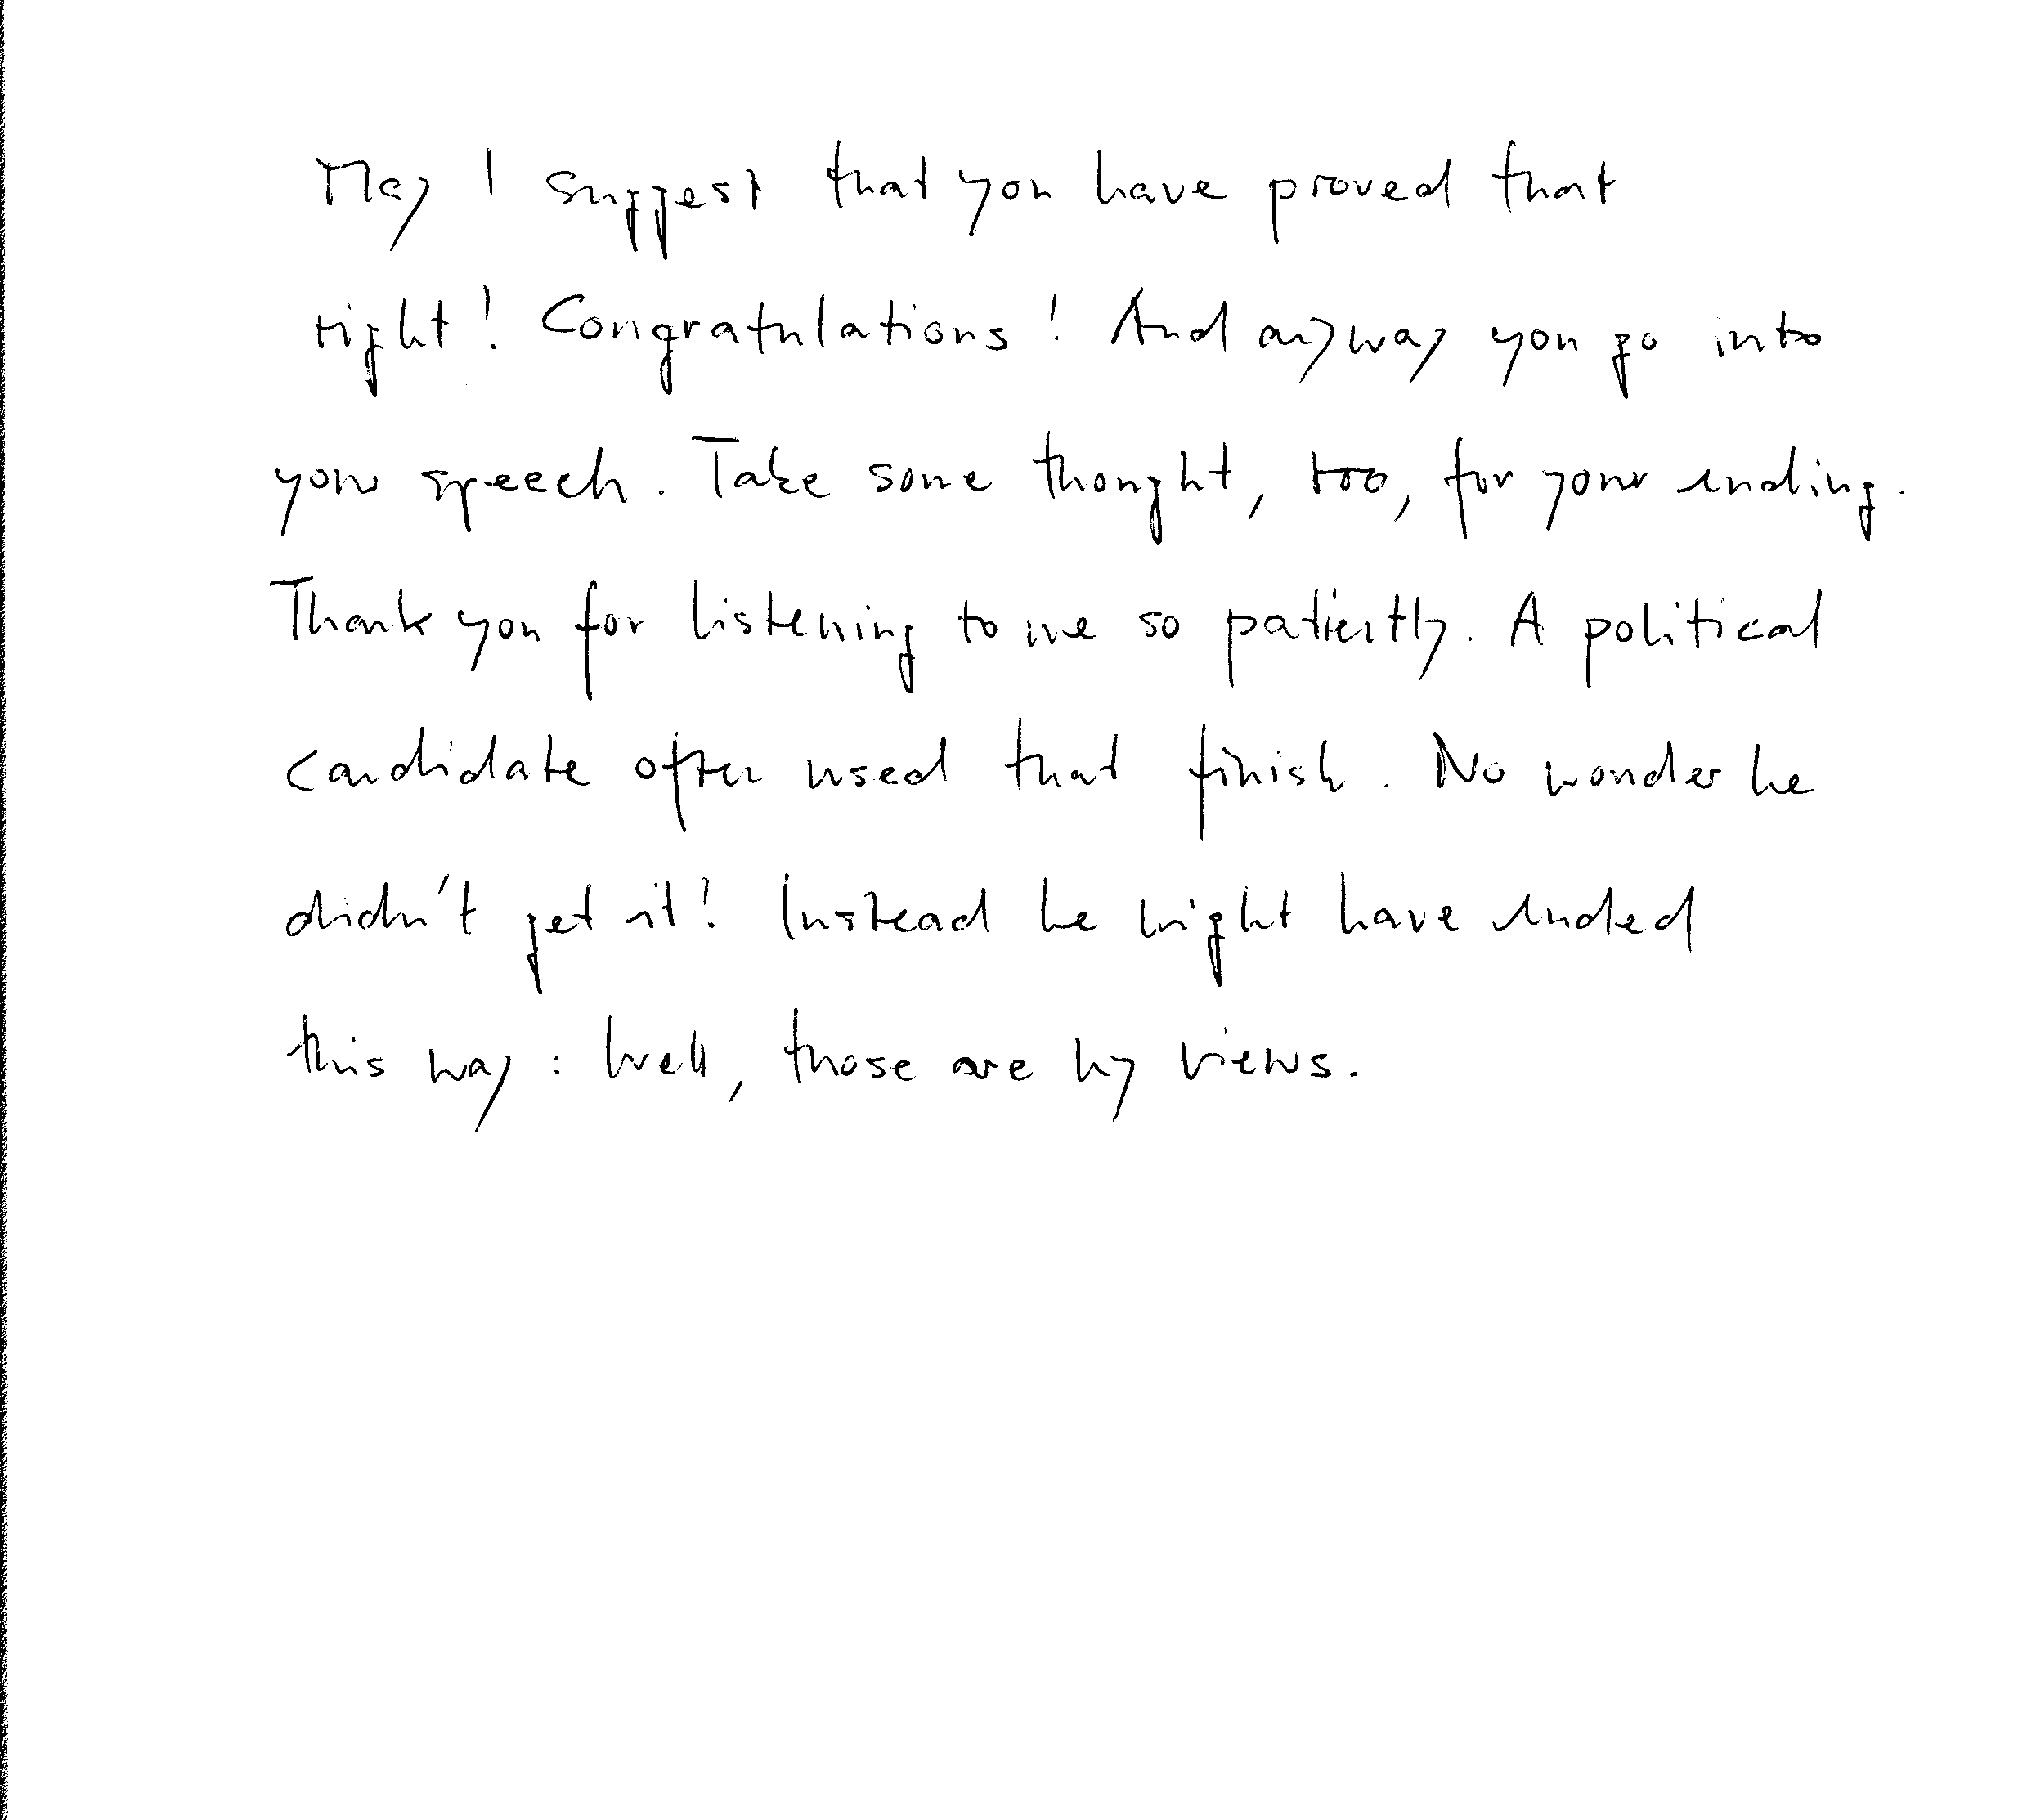 May I suggest that you have proved that
right! Congratulations! And anyway you go into
your speech. Take some thought, too, for your ending.
Thank you for listening to me so patiently. A political
candidate often used that finish. No wonder he
didn't get it! Instead he might have ended
this way: Well, those are my views.